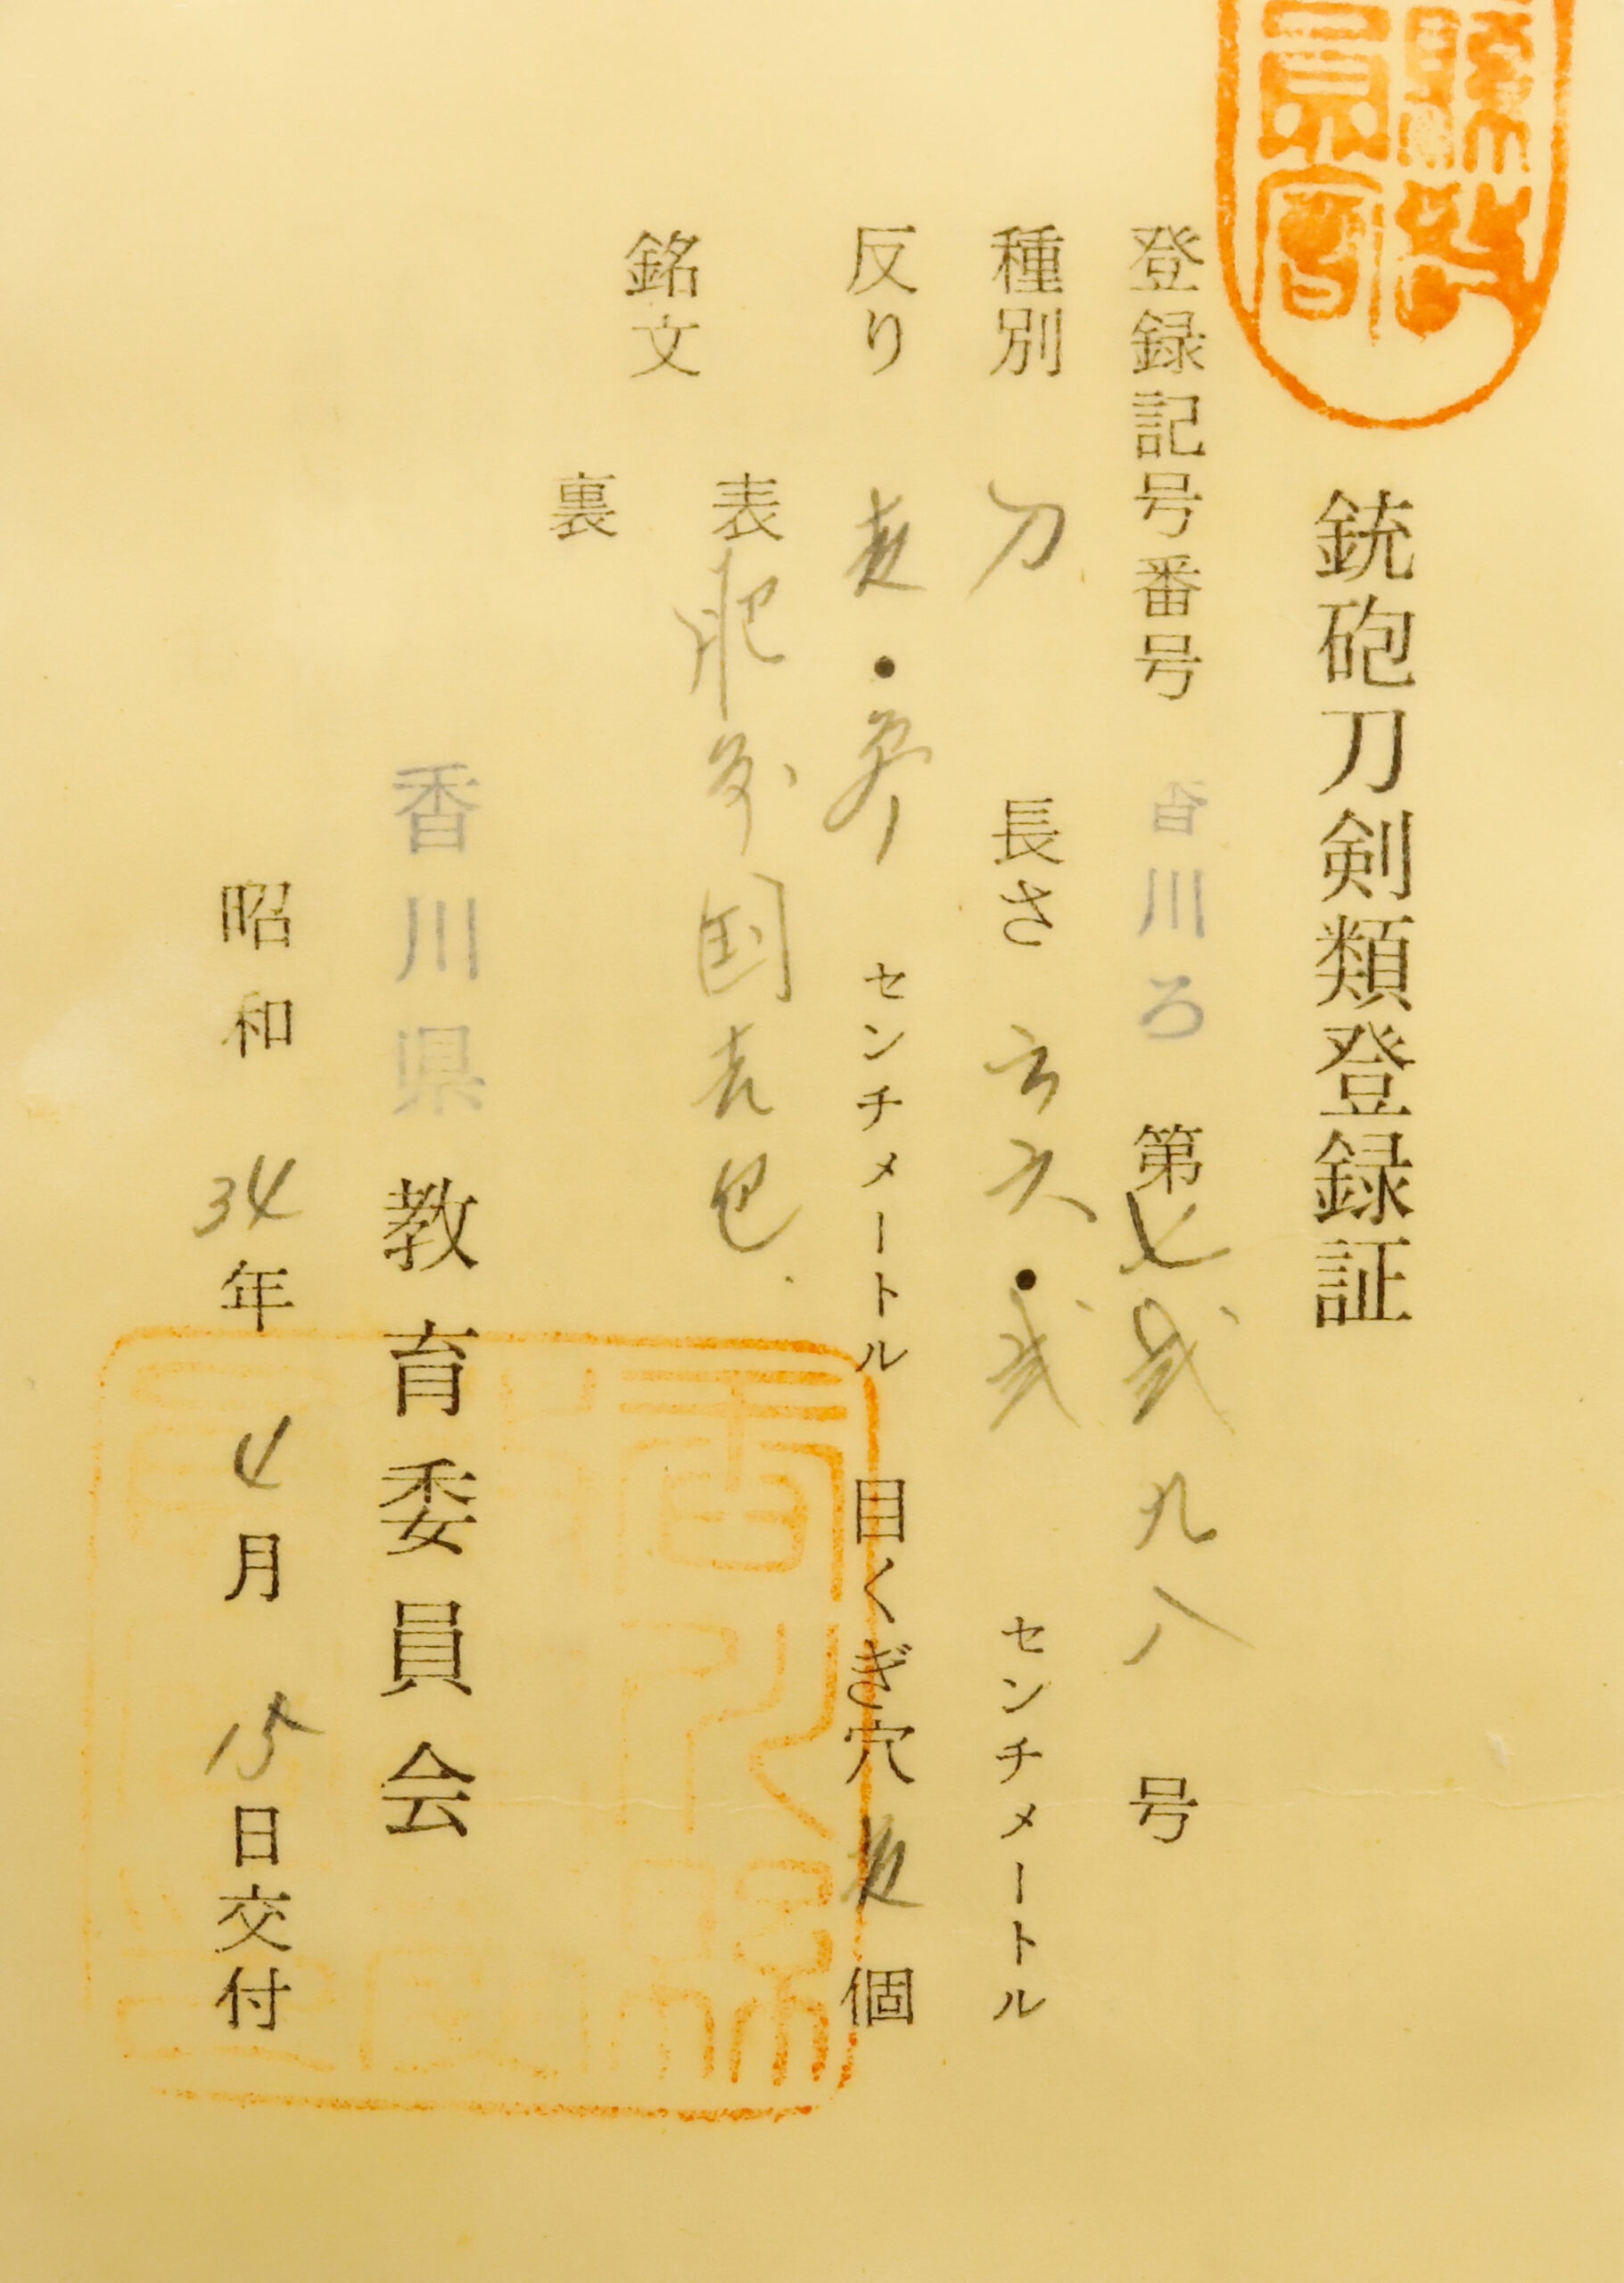 縣教
員會
銃砲刀剣類登録証
登録記号番号 香川ろ 第七弐九八号
種別 刀 長さ 六六・弐 センチメートル
反り 壱・参 センチメートル 目くぎ穴 壱 個
銘文
表 肥前国
裏
香川県教育委員会
昭和34年4月15日交付